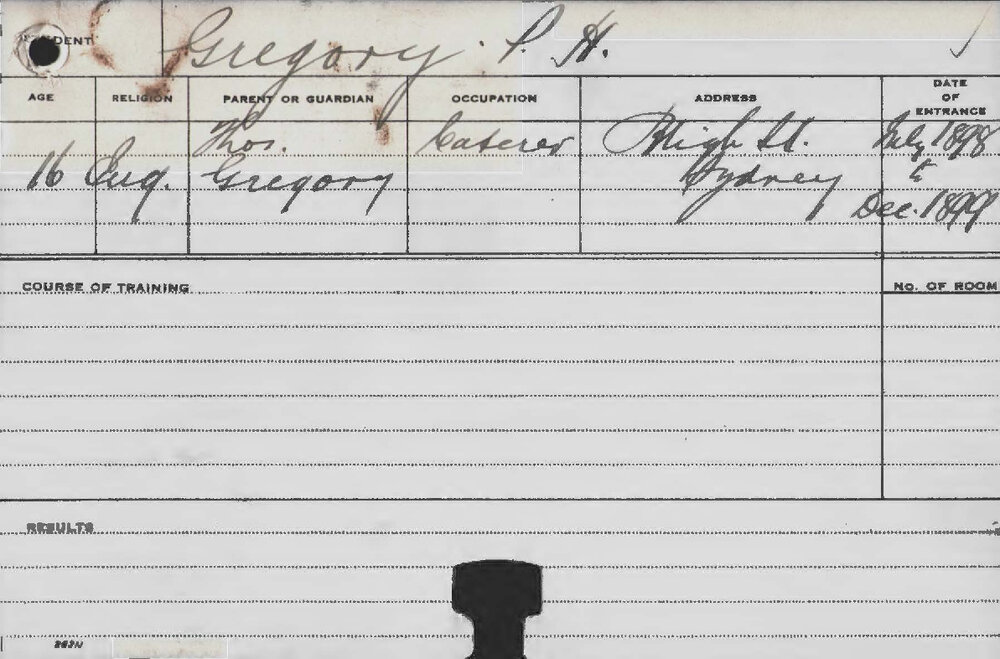 DENT Gregory. P. H.
AGE RELIGION PARENT OR GUARDIAN OCCUPATION ADDRESS DATE OF ENTRANCE
Thos. Caterer Bligh St. July 1898
16 Eng. Gregory Sydney to
Dec. 1899
COURSE OF TRAINING No. OF ROOM
RESULTS